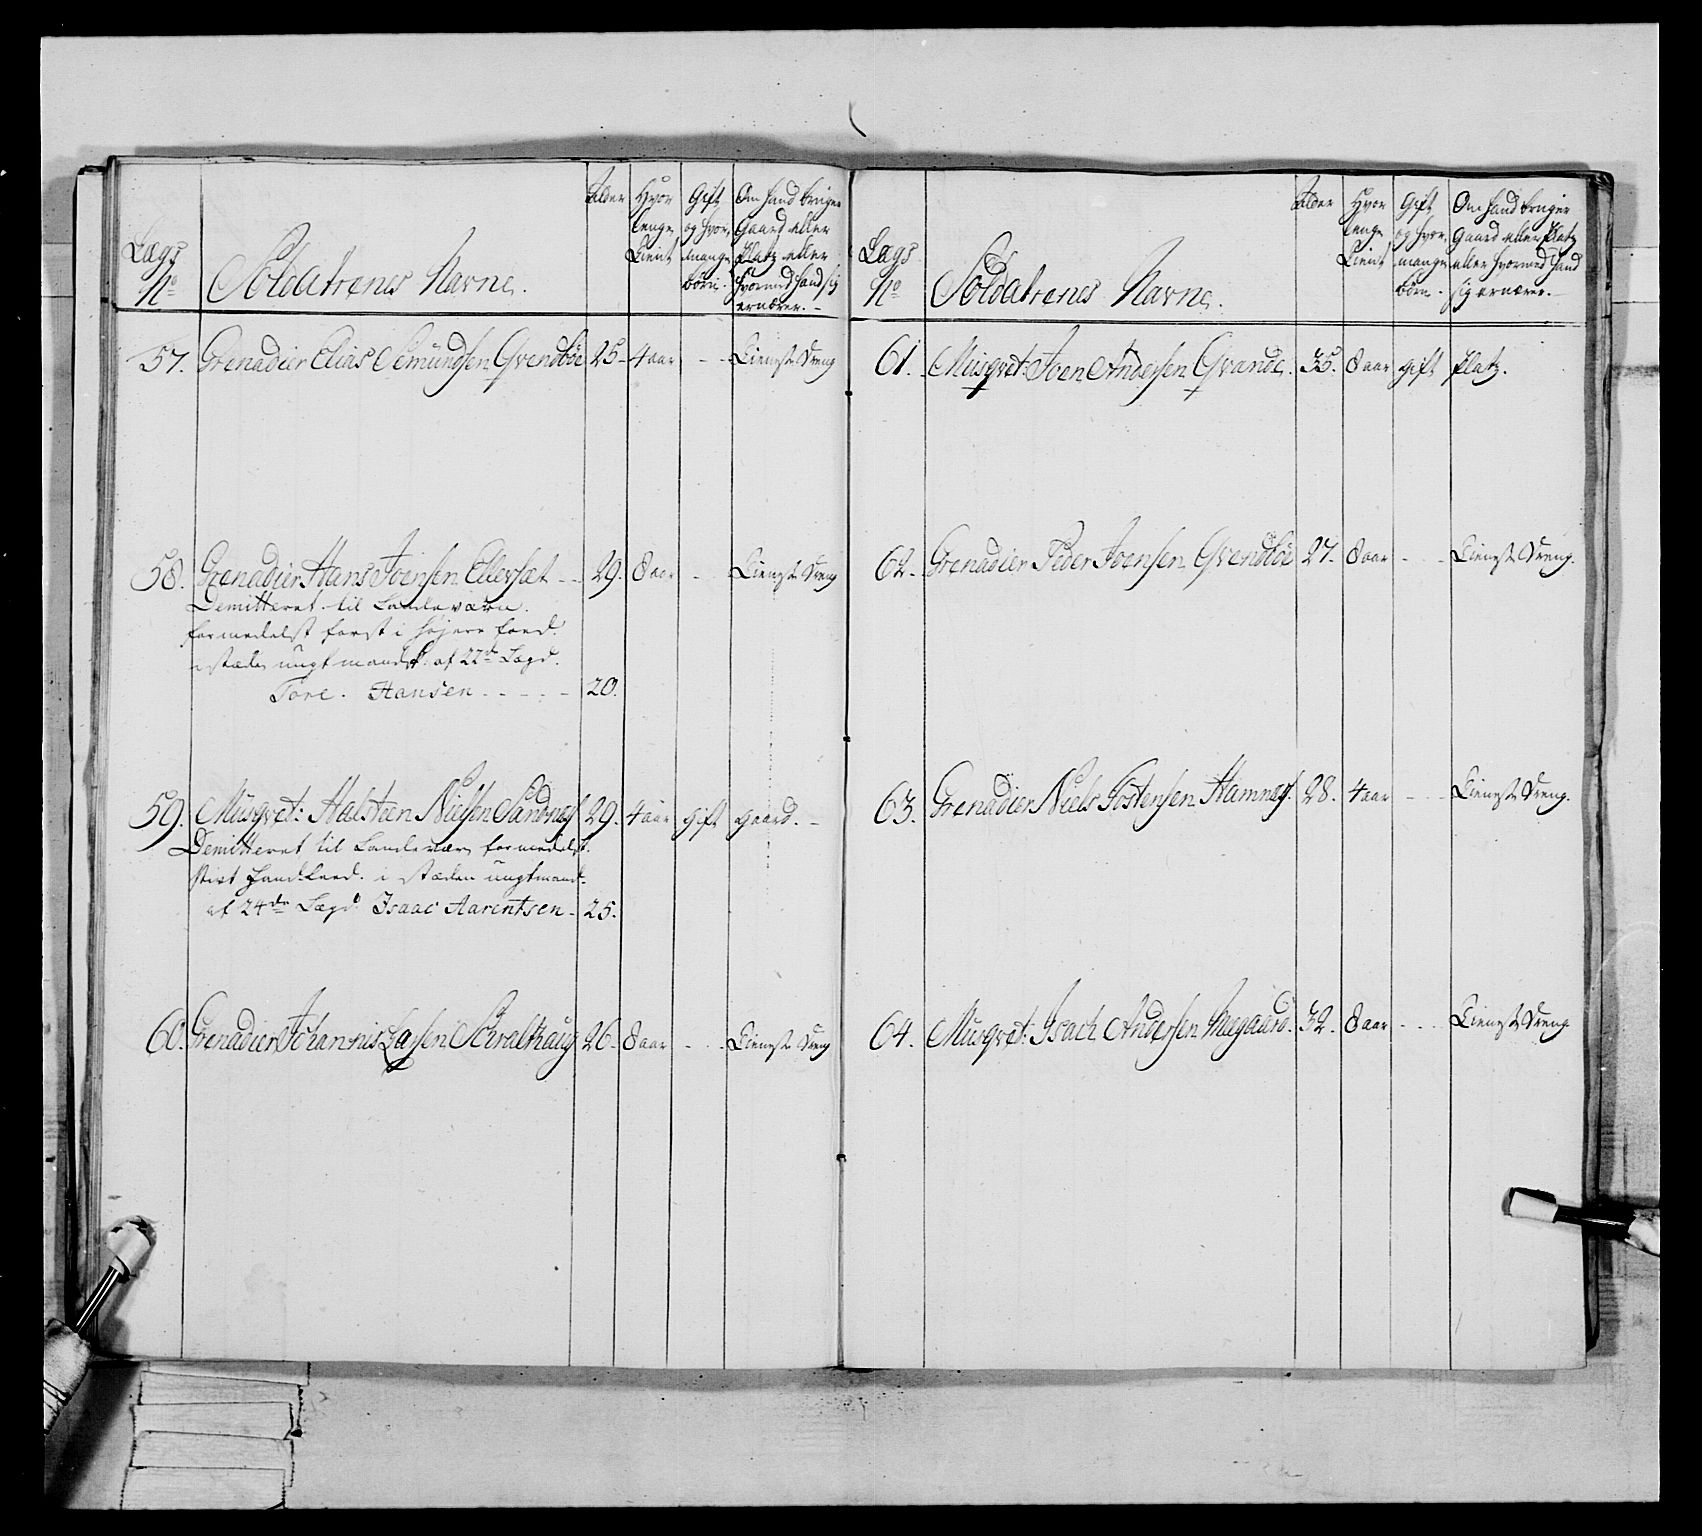 Lægs
No
Soldatrenes Navne.
Alder
Hvor
lenge
tient
Gift
og hvor
mange
børn.
Om hand bruger
Gaard eller
Platz eller
hvormed hand sig
ernærer.
57. Grenadier Elias Semundsen Qvendbøe 25 4 aar - - Tieneste Dreng
58. Grenadier Hans Joensen Ellersæt - - 29. 8 aar - Tieneste Dreng
Demitteret til Landeværn
formedelst først i højere
i stæden ungt mandsk. af 22de Lægd.
Tore. Hansen - - - - - 20.
59. Musqvet: Halsteen Nielsen Sandnes 29. 4 aar gift gaard. -
Demitteret til Landeværn formedelst
i stæden ungtmand-
af 24de Lægd. Isaac Aarentsen - 25.
60. Grenadier Johannis Lassen Schralthaug 26. 8 aar - - - Tieneste Dreng
Lægs
No
Soldatrenes Navne.
Alder
Hvor
lenge
tient
Gift
og hvor
mange
børn.
Om hand bruger
Gaard eller Platz
eller hvormed hand
sig ernærer.
61. Musqvet: Joen Andersen Qvande. 35. 8 aar gift Platz.
62. Grenadier Peder Joensen Qvendbøe 27. 8 aar - - - Tieneste Dreng.
63. Grenadier Niels Jostensen Hamnes. 28. 4 aar - - - Tieneste Dreng.
64. Musqvet: Isach Andersen Nuegaard. 32. 8 aar - - - Tieneste Dreng